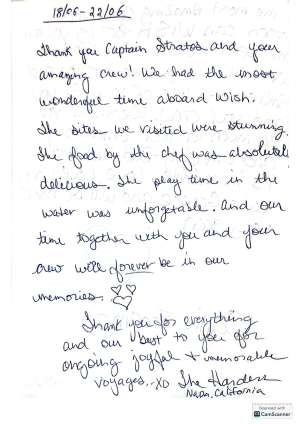 18/06-22/06
Thank you Captain Stratos and your
amazing crew! We had the most
wonderful time aboard Wish.
The sites we visited were stunning.
The food by the chef was absolutely
delicious. The play time in the
water was unforgetable. And our
time together with you and your
crew will forever be in our
memories.
Thank you for everything
and our best to you for
ongoing joyful + memorable
voyages. XO The Harders
Napa, California
Scanned with
CamScanner